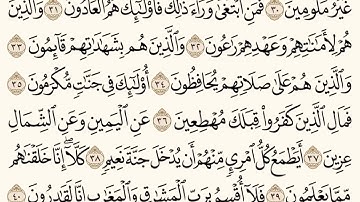 غَيْرُ مَلُومِينَ ٣٠ فَمَنِ ٱبْتَغَىٰ وَرَآءَ ذَٰلِكَ فَأُوْلَٰٓئِكَ هُمُ ٱلْعَادُونَ ٣١ وَٱلَّذِينَ
هُمْ لِأَمَٰنَٰتِهِمْ وَعَهْدِهِمْ رَٰعُونَ ٣٢ وَٱلَّذِينَ هُم بِشَهَٰدَٰتِهِمْ قَآئِمُونَ ٣٣
وَٱلَّذِينَ هُمْ عَلَىٰ صَلَاتِهِمْ يُحَافِظُونَ ٣٤ أُوْلَٰٓئِكَ فِى جَنَّٰتٍ مُّكْرَمُونَ ٣٥
فَمَالِ ٱلَّذِينَ كَفَرُواْ قِبَلَكَ مُهْطِعِينَ ٣٦ عَنِ ٱلْيَمِينِ وَعَنِ ٱلشِّمَالِ
عِزِينَ ٣٧ أَيَطْمَعُ كُلُّ ٱمْرِئٍ مِّنْهُمْ أَن يُدْخَلَ جَنَّةَ نَعِيمٍ ٣٨ كَلَّآ إِنَّا خَلَقْنَٰهُم
مِّمَّا يَعْلَمُونَ ٣٩ فَلَآ أُقْسِمُ بِرَبِّ ٱلْمَشَٰرِقِ وَٱلْمَغَٰرِبِ إِنَّا لَقَٰدِرُونَ ٤٠